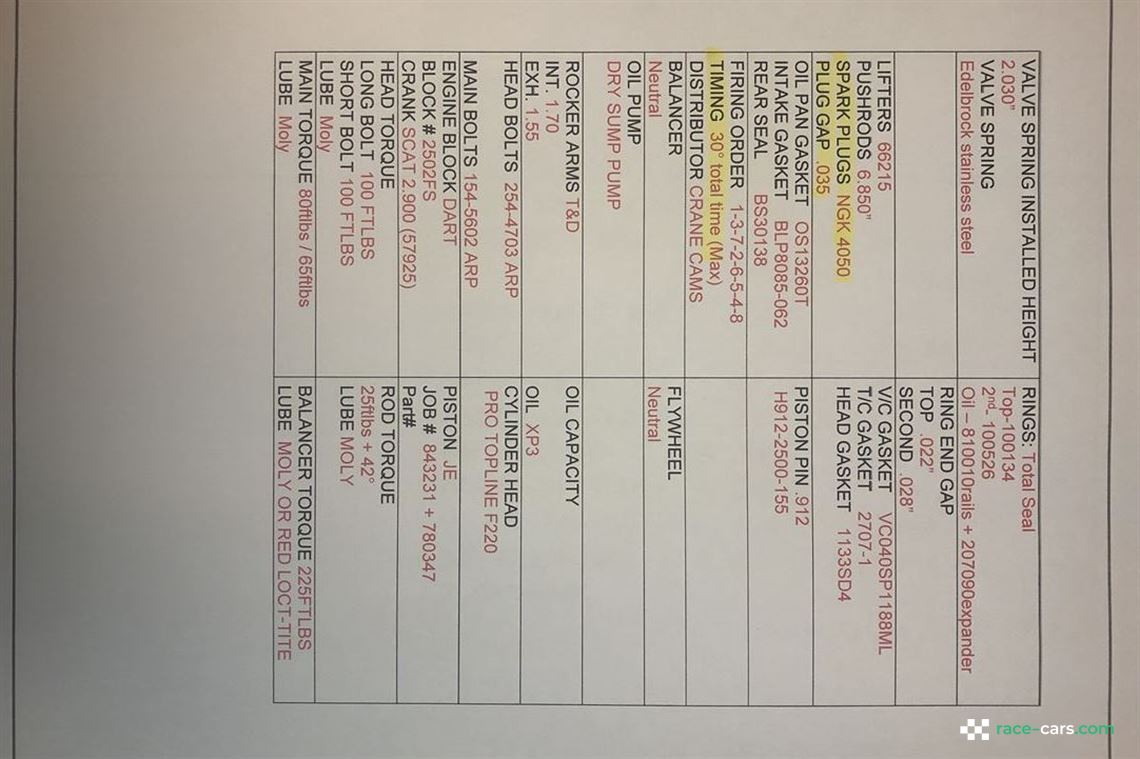 VALVE SPRING INSTALLED HEIGHT
2.030"
VALVE SPRING
Edelbrock stainless steel
RINGS: Total Seal
Top-100134
2nd- 100526
Oil – 810010rails + 207090expander
RING END GAP
TOP .022"
SECOND .028"
LIFTERS 66215
PUSHRODS 6.850"
SPARK PLUGS NGK 4050
PLUG GAP .035
V/C GASKET VC040SP1188ML
T/C GASKET 2707-1
HEAD GASKET 1133SD4
OIL PAN GASKET OS13260T
INTAKE GASKET BLP8085-062
REAR SEAL BS30138
PISTON PIN .912
H912-2500-155
FIRING ORDER 1-3-7-2-6-5-4-8
TIMING 30° total time (Max)
DISTRIBUTOR CRANE CAMS
BALANCER
Neutral
FLYWHEEL
Neutral
OIL PUMP
DRY SUMP PUMP
ROCKER ARMS T&D
INT. 1.70
EXH. 1.55
OIL CAPACITY
OIL XP3
HEAD BOLTS 254-4703 ARP
MAIN BOLTS 154-5602 ARP
CYLINDER HEAD
PRO TOPLINE F220
ENGINE BLOCK DART
BLOCK # 2502FS
CRANK SCAT 2.900 (57925)
PISTON JE
JOB # 843231 + 780347
Part#
HEAD TORQUE
LONG BOLT 100 FTLBS
SHORT BOLT 100 FTLBS
LUBE Moly
ROD TORQUE
25ftlbs + 42°
LUBE MOLY
MAIN TORQUE 80ftlbs / 65ftlbs
LUBE Moly
BALANCER TORQUE 225FTLBS
LUBE MOLY OR RED LOCT-TITE
race-cars.com